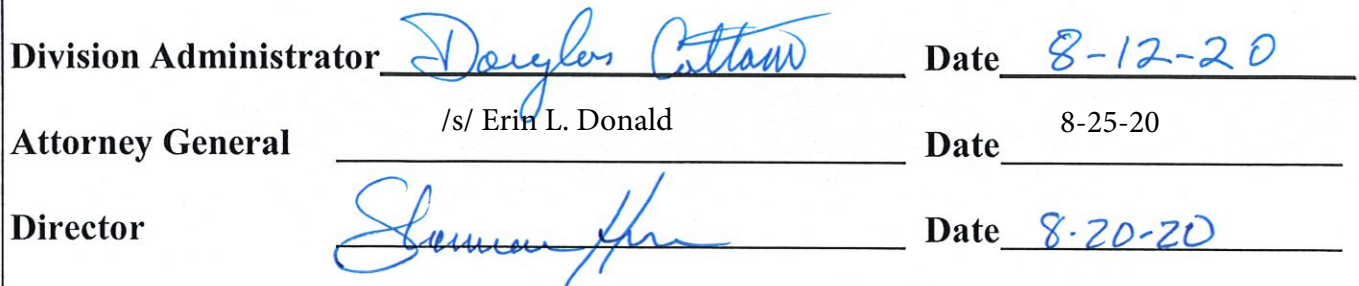 Division Administrator Douglas Cottam Date 8-12-20
Attorney General /s/ Erin L. Donald Date 8-25-20
Director Date 8-20-20